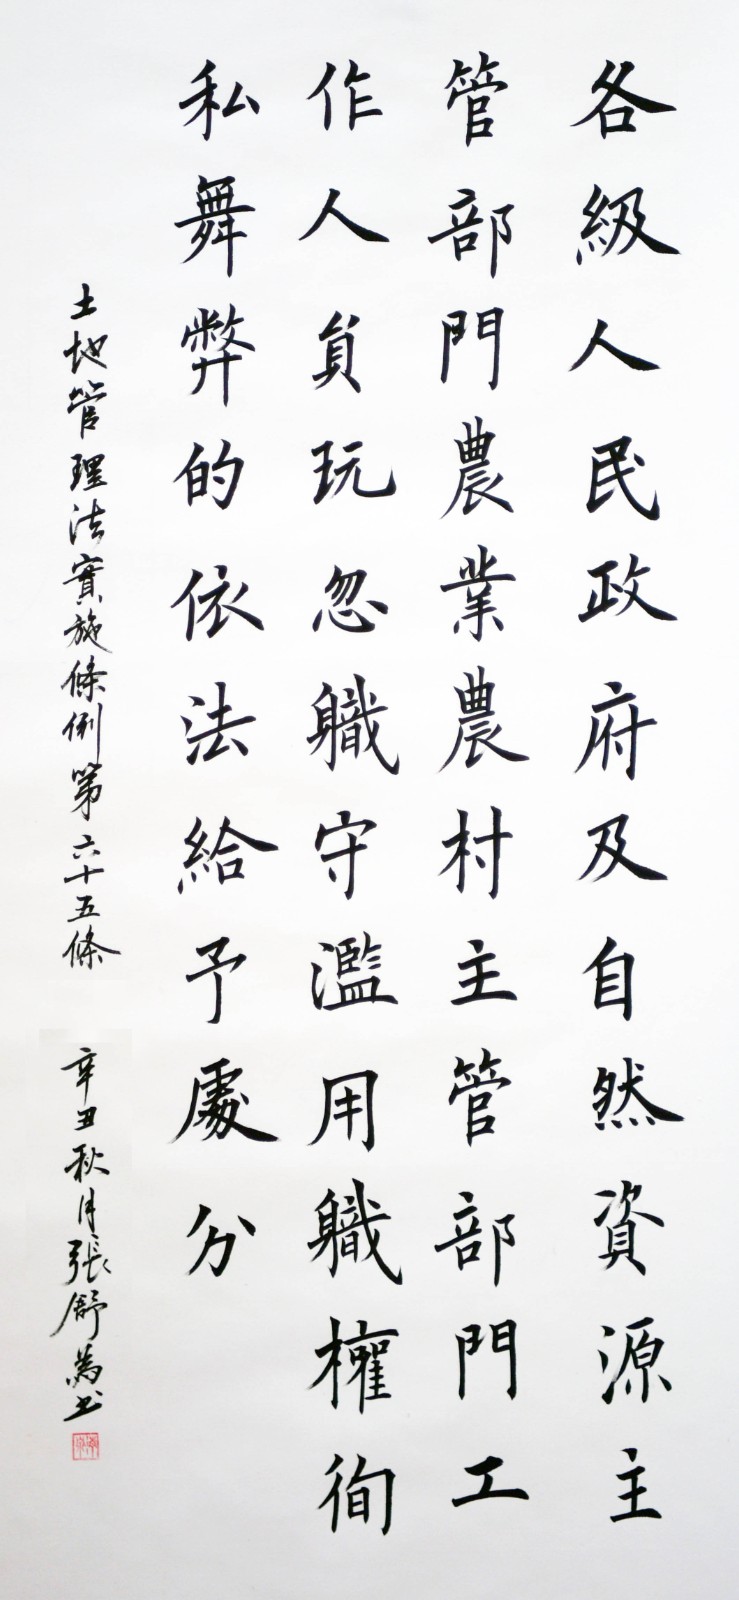 各級人民政府及自然資源主
管部門農業農村主管部門工
作人員玩忽職守濫用職權徇
私舞弊的依法給予處分
土地管理法實施條例第六十五條
辛丑秋月張舒為書